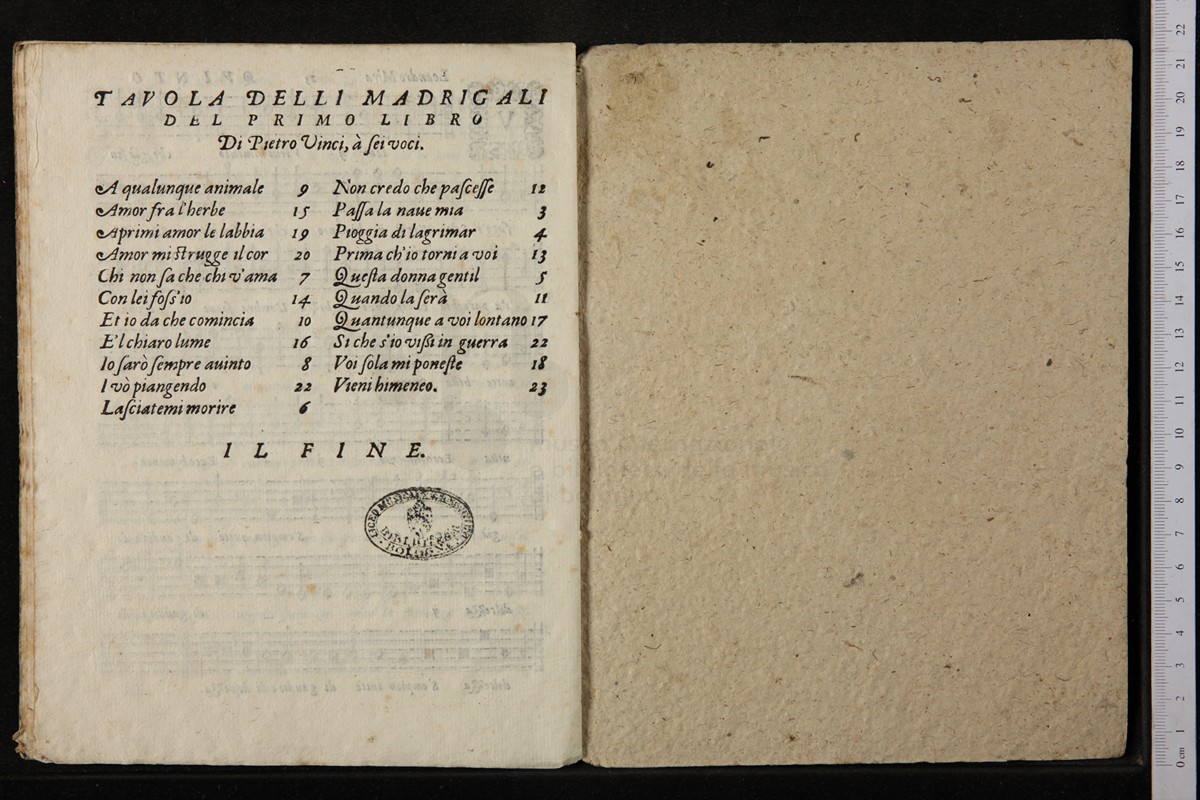 TAVOLA DELLI MADRIGALI
DEL PRIMO LIBRO
Di Pietro Vinci, à ſei voci.
A qualunque animale 9
Amor fra l'herbe 15
Aprimi amor le labbia 19
Amor mi ſtrugge il cor 20
Chi non ſa che chi v'ama 7
Con lei foſs'io 14
Et io da che comincia 10
E'l chiaro lume 16
Io ſarò ſempre auinto 8
I vò piangendo 22
Laſciatemi morire 6
Non credo che paſceſſe 12
Paſſa la naue mia 3
Pioggia di lagrimar 4
Prima ch'io torni a voi 13
Queſta donna gentil 5
Quando la ſera 11
Quantunque a voi lontano 17
Si che s'io viſsi in guerra 22
Voi ſola mi poneſte 18
Vieni himeneo. 23
IL FINE.
LICEO MUSICALE
BOLOGNA
0 cm 1 2 3 4 5 6 7 8 9 10 11 12 13 14 15 16 17 18 19 20 21 22